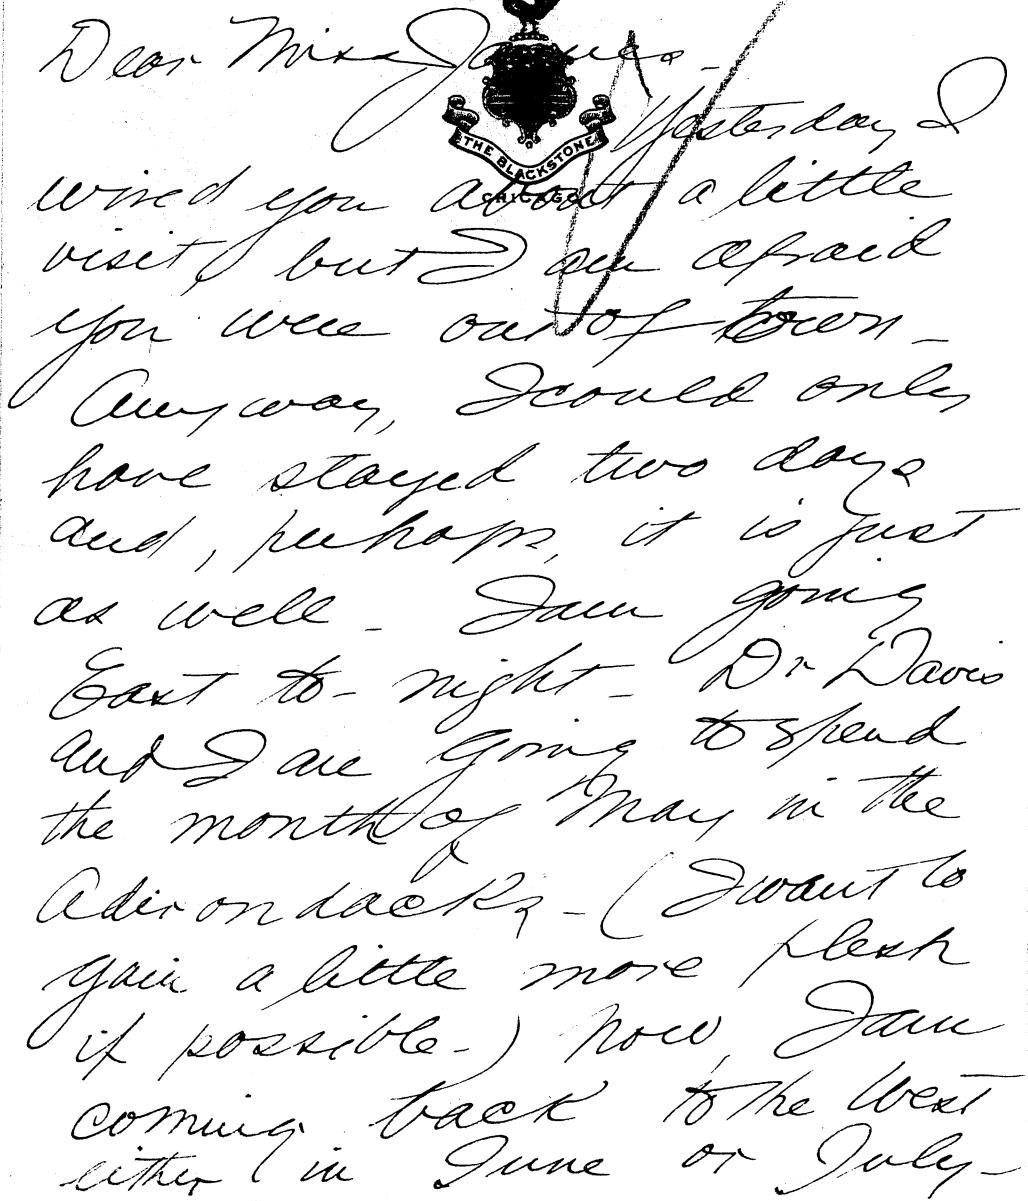 Dear Miss James -
THE BLACKSTONE
CHICAGO
Yesterday I
wired you about a little
visit, but I am afraid
you were out of town -
Anyway, I could only
have stayed two days
and, perhaps, it is just
as well - I am going
East to-night - Dr Davis
and I are going to spend
the month of May in the
Adirondacks - (I want to
gain a little more flesh
if possible -) Now, I am
coming back to the West
either in June or July -